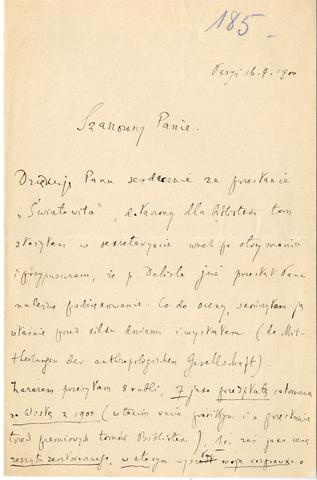 185.
Paryż 16.2.1900
Szanowny Panie.
Dziękuję Panu serdecznie za przesłanie
„Światowita", darowany dla biblioteki tom
złożyłem w sekretaryacie wnet po otrzymaniu
i przypuszczam, że p. Delisle już przesłał Panu
należne podziękowanie. Co do oceny, skończyłem ją
właśnie przed kilku dniami i wysłałem (do Mit-
theilungen der anthropologischen Gesellschaft).
Zarazem przesyłam 8 rubli, 7 jako przedpłatę całoroczną
na Wisłę z 1900 (w takim razie prosiłbym i o przesłanie
tych premiowych tomów Biblioteki), 1 r. zaś jako cenę
zeszytu zeszłorocznego, w którym wyszła moja rozprawa o